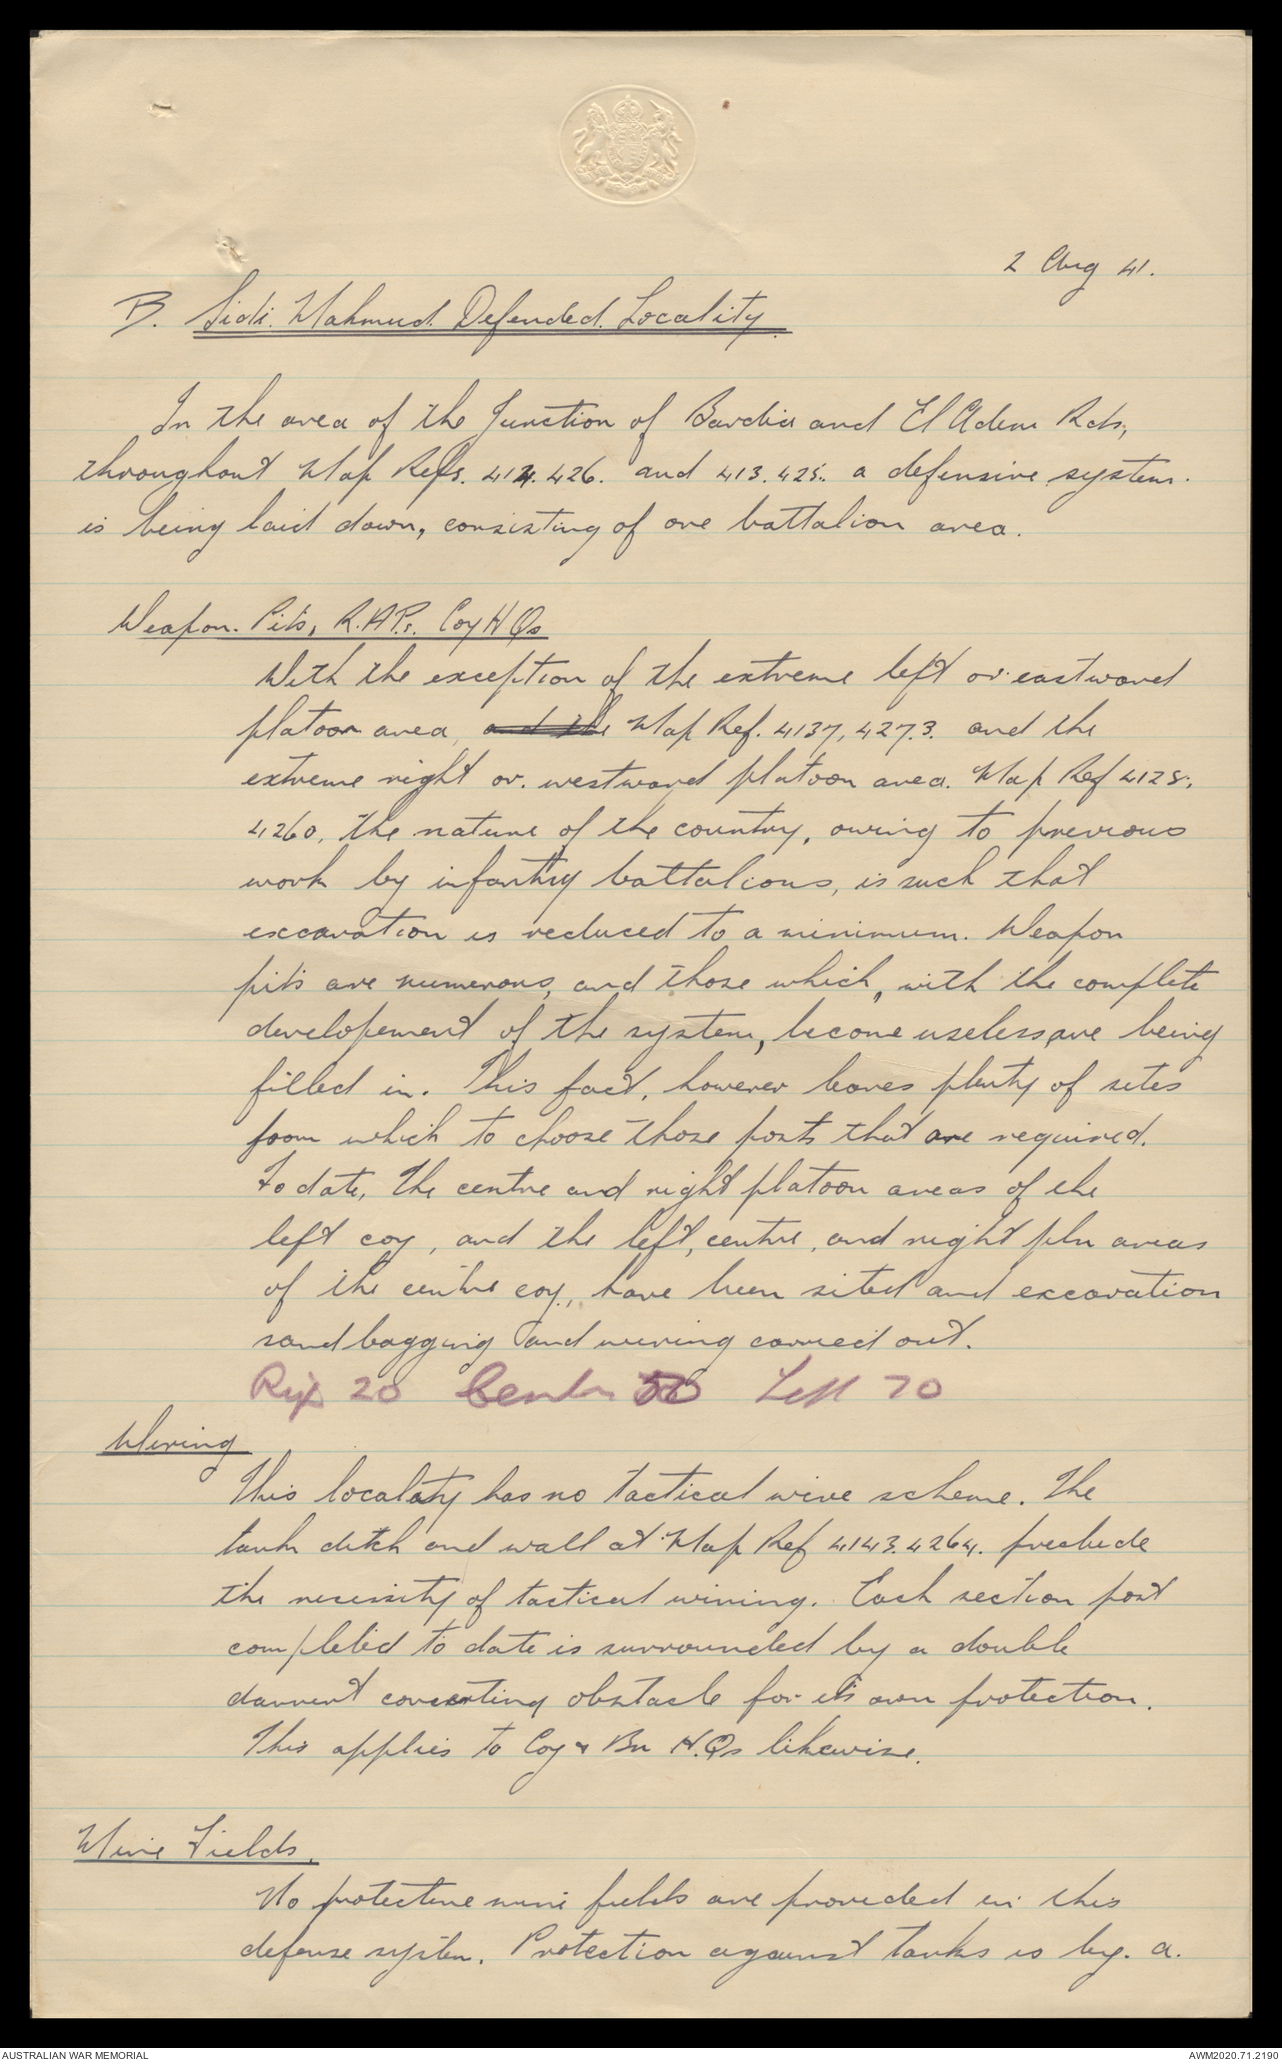 2 Aug 41.
B. Sidi. Mahmud. Defended. Locality.
In the area of the Junction of Bardia and El Adem Rds,
throughout Map Refs. 414. 426. and 413. 425. a defensive system.
is being laid down, consisting of one battalion area.
Weapon. Pits, R.A.Ps. Coy H Qs
With the exception of the extreme left or eastward
platoon area, and the Map Ref. 4137, 427.3. and the
extreme right or. westward platoon area. Map Ref 4128,
4260, the nature of the country, owing to previous
work by infantry battalions, is such that
excavation is reduced to a minimum. Weapon
pits are numerous, and those which, with the complete
developement of the system, become useless, are being
filled in. This fact, however leaves plenty of sites
from which to choose those posts that are required.
To date, The centre and right platoon areas of the
left coy, and the left, centre, and right pln areas
of the centre coy., have been sited and excavation
sandbagging and wiring carried out.
Rig 20 Centre 50 Left 70
Wiring
This locality has no tactical wire scheme. The
tank ditch and wall at Map Ref 4143. 4264. preclude
the necessity of tactical wiring. Each section post
completed to date is surrounded by a double
dannert concerting obstacle for its own protection.
This applies to Coy & Bn H.Qs likewise.
Mine Fields.
No protective mine fields are provided in this
defense system. Protection against tanks is by. a.
AUSTRALIAN WAR MEMORIAL
AWM2020.71.2190